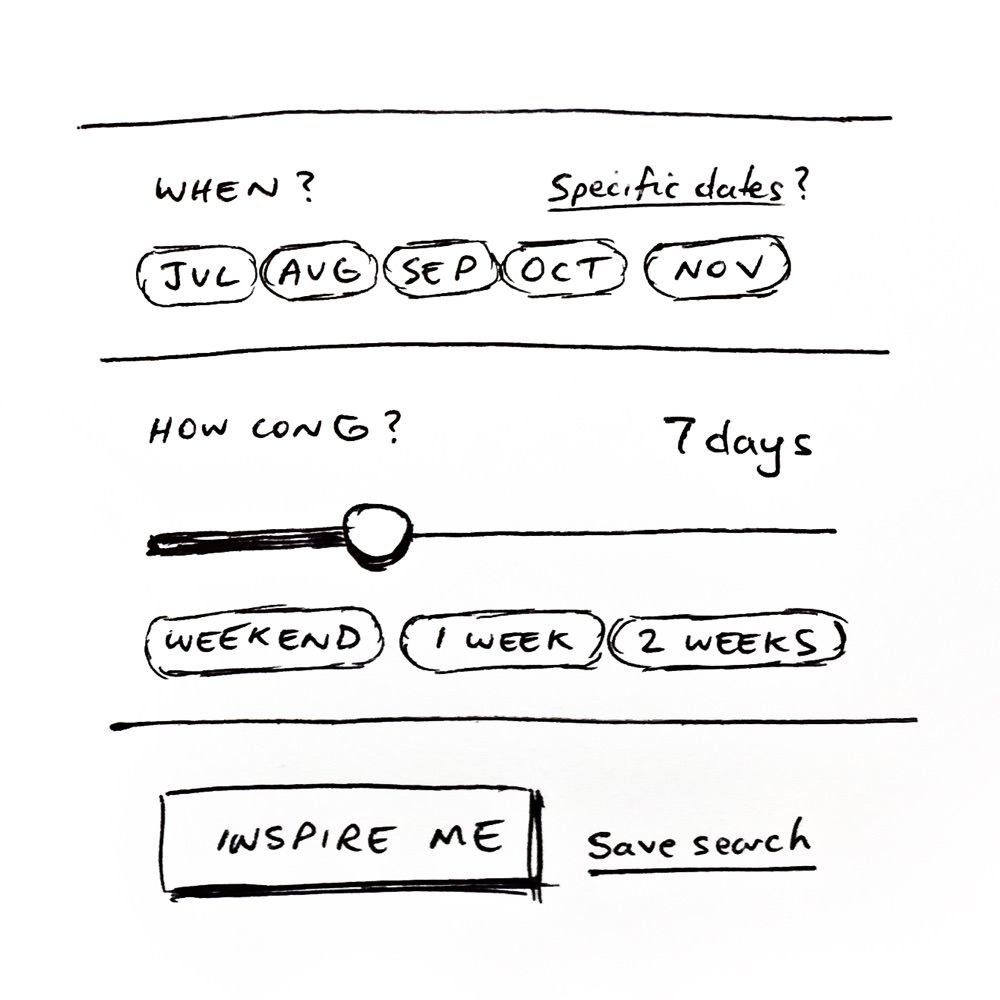 WHEN? Specific dates?
JUL AUG SEP OCT NOV
HOW LONG? 7 days
WEEKEND 1 WEEK 2 WEEKS
INSPIRE ME Save search